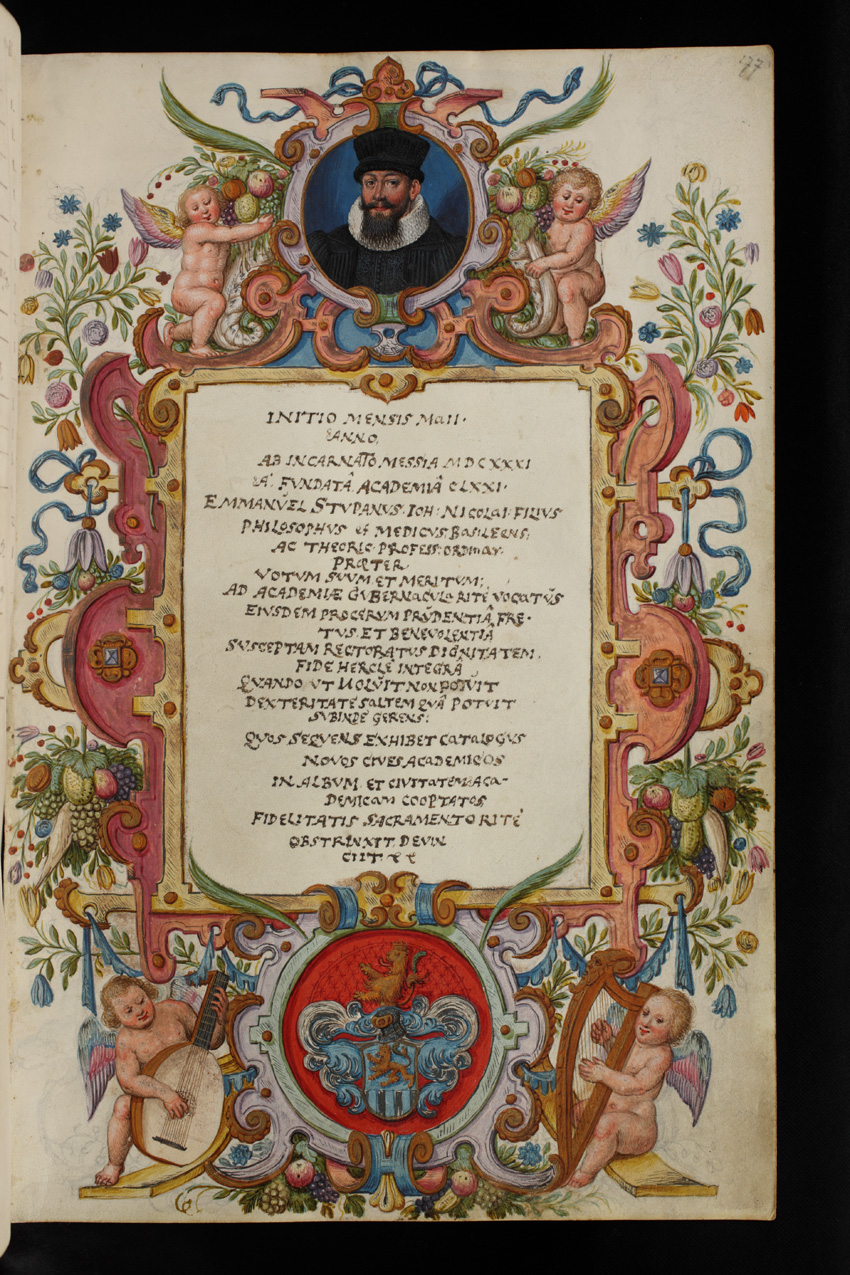 177
INITIO MENSIS MAII.
ANNO,
AB INCARNATO MESSIA MDCXXXI
A. FUNDATÂ ACADEMIÂ CLXXI.
EMMANUEL STUPANUS. IOH: NICOLAI FILIUS
PHILOSOPHUS et MEDICUS BASILEENS:
AC THEORIC: PROFESS: ORDINAR.
PRÆTER
VOTUM SUUM ET MERITUM;
AD ACADEMIÆ GUBERNACULA RITÈ VOCATUS
EIUSDEM PROCERUM PRUDENTIÂ FRE-
TUS, ET BENEVOLENTIÂ
SUSCEPTAM RECTORATUS DIGNITATEM,
FIDE HERCLÈ INTEGRÂ
QUANDO UT UOLUIT NON POTUIT
DEXTERITATE SALTEM QUÂ POTUIT
SUBINDE GERENS:
QUOS SEQUENS EXHIBET CATALOGUS
NOVOS CIVES ACADEMICOS
IN ALBUM ET CIVITATEM ACA-
DEMICAM COOPTATOS
FIDELITATIS SACRAMENTO RITÈ
OBSTRINXIT, DEVIN
CIIT